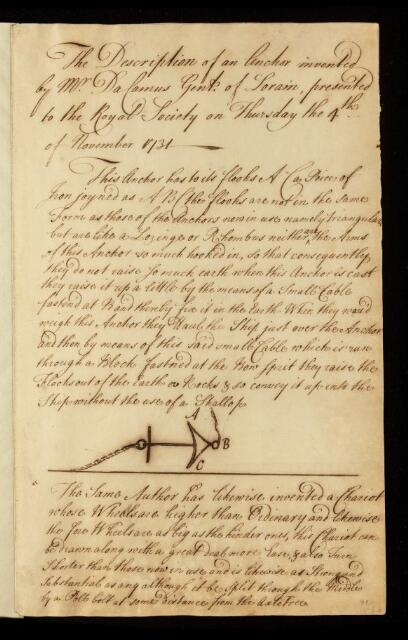 The Description of an Anchor invented
by Mr. Da Camus Gentn. of Lorain, presented
to the Royal Society on Thursday the 4th.
of November 1731
This Anchor has to its flooks A C a Piece of
Iron joyned as A B C the flooks are not in the Same
Form as those of the Anchors now in use namely triangular
but are like a Lozinge or Rhombus neither are the Arms
of this Anchor so much hooked in, so that consequently
they do not raise so much earth when this Anchor is cast
they raise it up a little by the means of a Small Cable
fastend at B and thereby fix it in the Earth When they would
weigh this Anchor they Haul the Ship just over the Anchor
and then by means of this said small Cable which is run
through a Block fastned at the Bow sprit they raise the
Flocks out of the Earth or Rocks & so convey it up into the
Ship without the use of a Shallop
A
B
C
The Same Author has likewise invented a Chariot
whose Wheels are higher than Ordinary and likewise
the fore Wheels are as big as the hinder ones, this Chariot can
be drawn along with a great deal more Ease, & also Turn
Shorter than those now in use and is likewise as Strong and
Substantial as any although it be split through the Middle
by a Pole bolt at some distance from the axletree